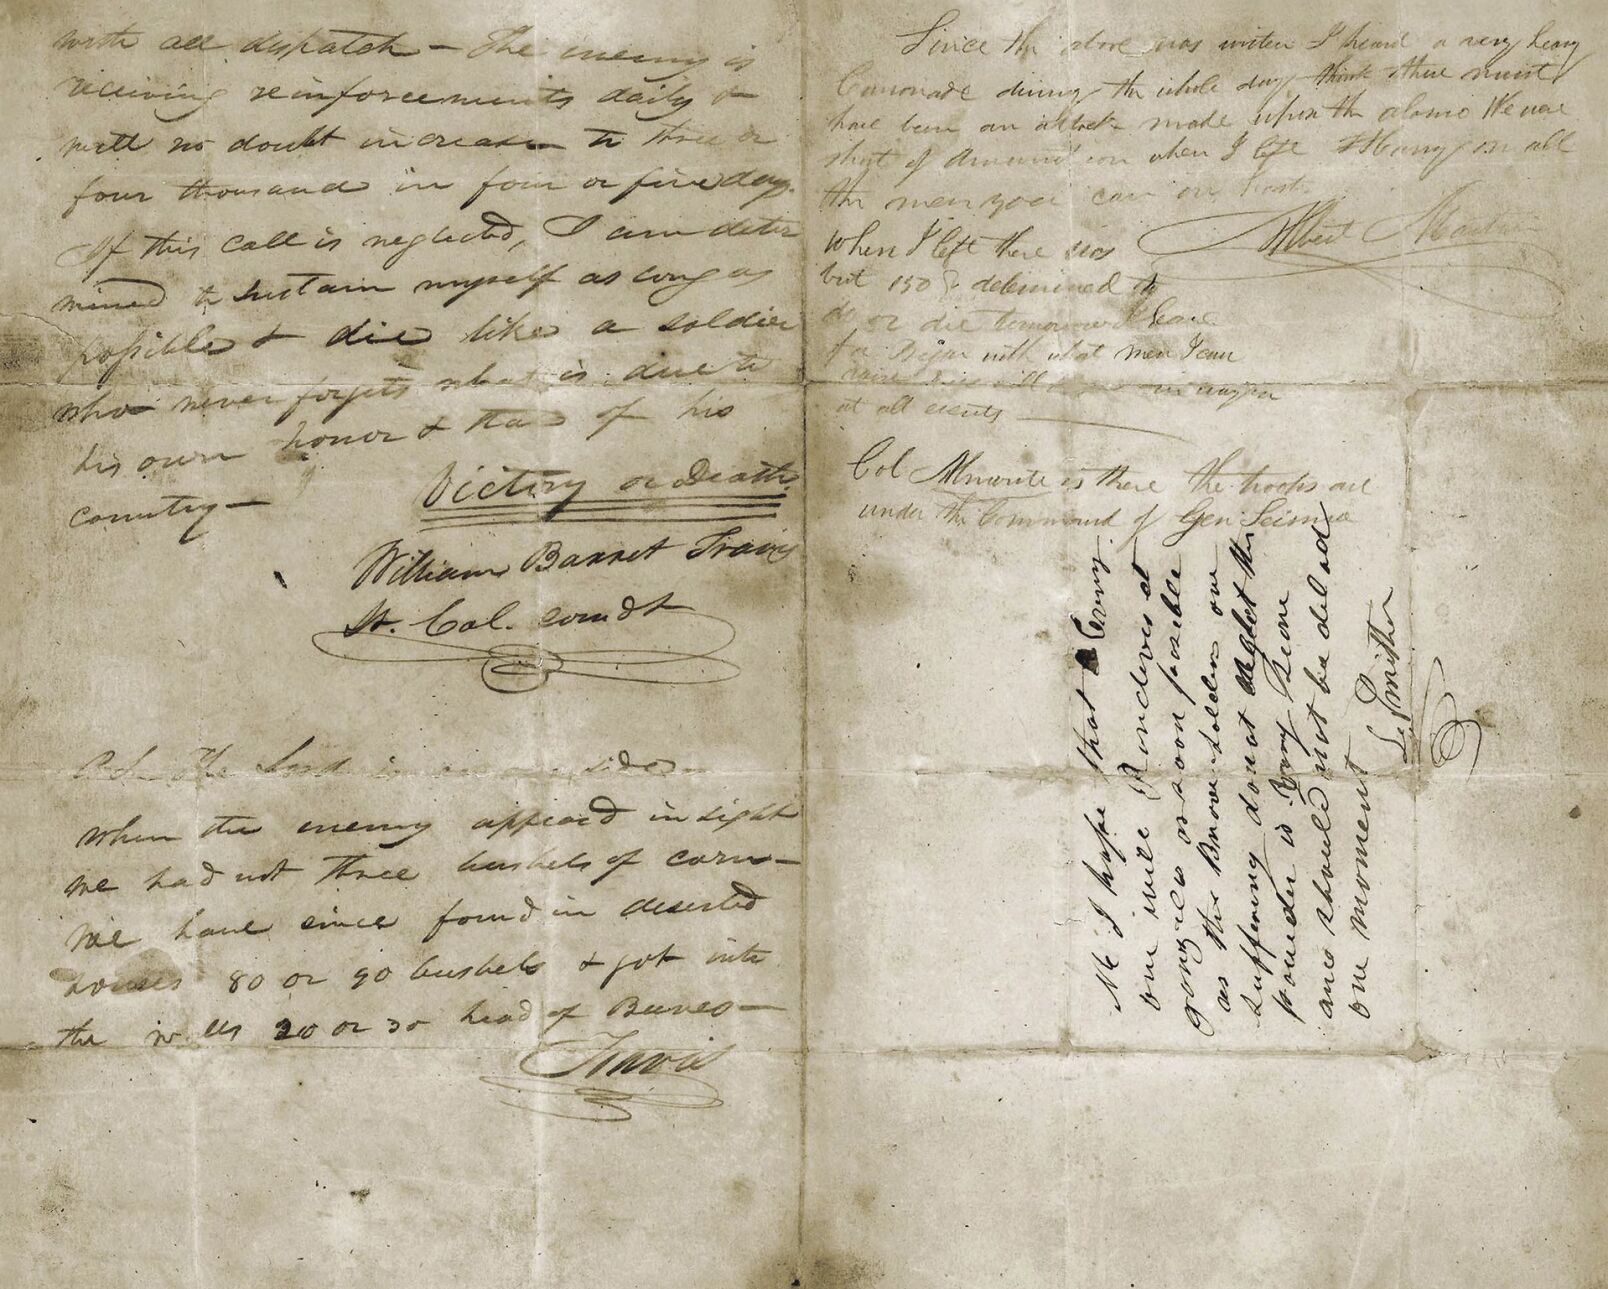 with all dispatch — The enemy is
receiving reinforcements daily &
will no doubt increase to three or
four thousand in four or five days.
If this call is neglected, I am deter
mined to sustain myself as long as
possible & die like a soldier
who never forgets what is due to
his own honor & that of his
country —
Victory or Death
William Barret Travis
Lt. Col. comdt
P.S. The Lord is on our side —
When the enemy appeard in sight
we had not three bushels of corn —
We have since found in deserted
houses 80 or 90 bushels & got into
the walls 20 or 30 head of Beeves —
Travis
Since the above was writen I heard a very heavy
Cannonade during the whole day think there must
have been an attack made upon the alamo We were
short of Amunition when I left Hurry on all
the men you can in haste
Albert Martin
When I left there was
but 150 determined to
do or die tomorrow I leave
for Bejar with what men I can
raise will
at all events —
Col Almonte is there the troops are
under the Command of Gen Seisma
I hope that Every
one will Randeves at
gonzales as soon posible
as the Brave soldiers are
suffering do not neglect the
powder is very scarce
and should not be delad
one moment
L. Smither